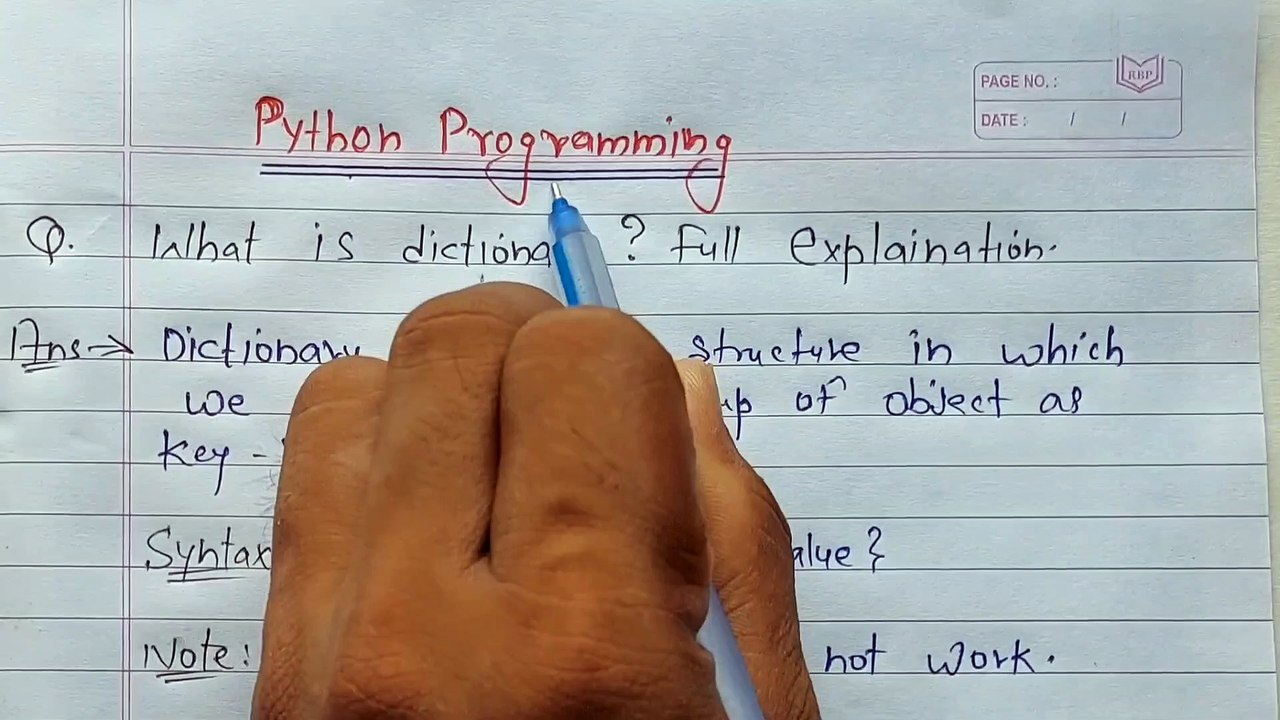 PAGE NO. :
RBP
DATE : / /
Python Programming
Q. What is dictiona ? Full Explaination.
Ans→ Dictionary structure in which
we up of object as
Key -
Syntax alue}
Note: not work.